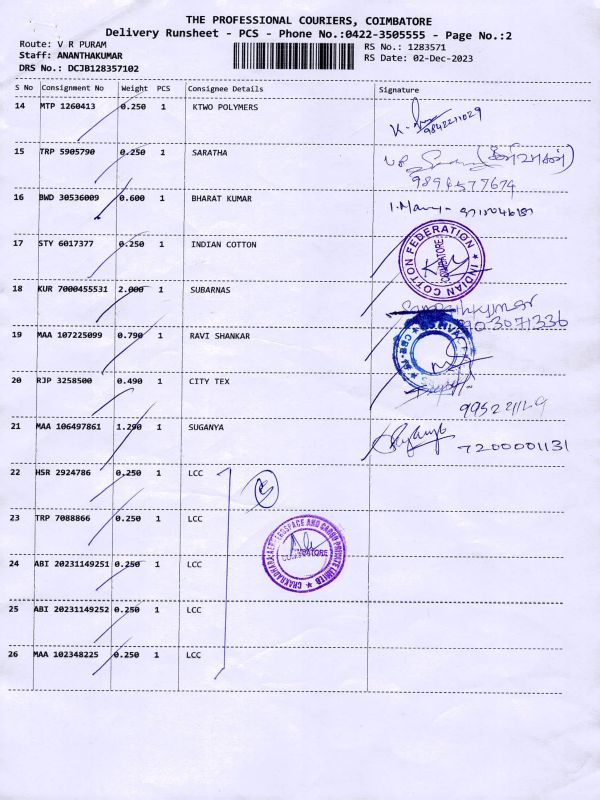 THE PROFESSIONAL COURIERS, COIMBATORE
Delivery Runsheet - PCS - Phone No.:0422-3505555 - Page No.:2
Route: V R PURAM
RS No.: 1283571
Staff: ANANTHAKUMAR
RS Date: 02-Dec-2023
DRS No.: DCJB128357102
S No Consignment No Weight PCS Consignee Details Signature
14 MTP 1260413 0.250 1 KTWO POLYMERS
9842211029
15 TRP 5905790 0.250 1 SARATHA
9894577674
16 BWD 30536009 0.600 1 BHARAT KUMAR
17 STY 6017377 0.250 1 INDIAN COTTON
INDIAN COTTON FEDERATION
COIMBATORE
18 KUR 7000455531 2.000 1 SUBARNAS
19 MAA 107225099 0.790 1 RAVI SHANKAR
20 RJP 3258500 0.490 1 CITY TEX
21 MAA 106497861 1.290 1 SUGANYA
7200001131
22 HSR 2924786 0.250 1 LCC
23 TRP 7088866 0.250 1 LCC
24 ABI 20231149251 0.250 1 LCC
25 ABI 20231149252 0.250 1 LCC
26 MAA 102348225 0.250 1 LCC